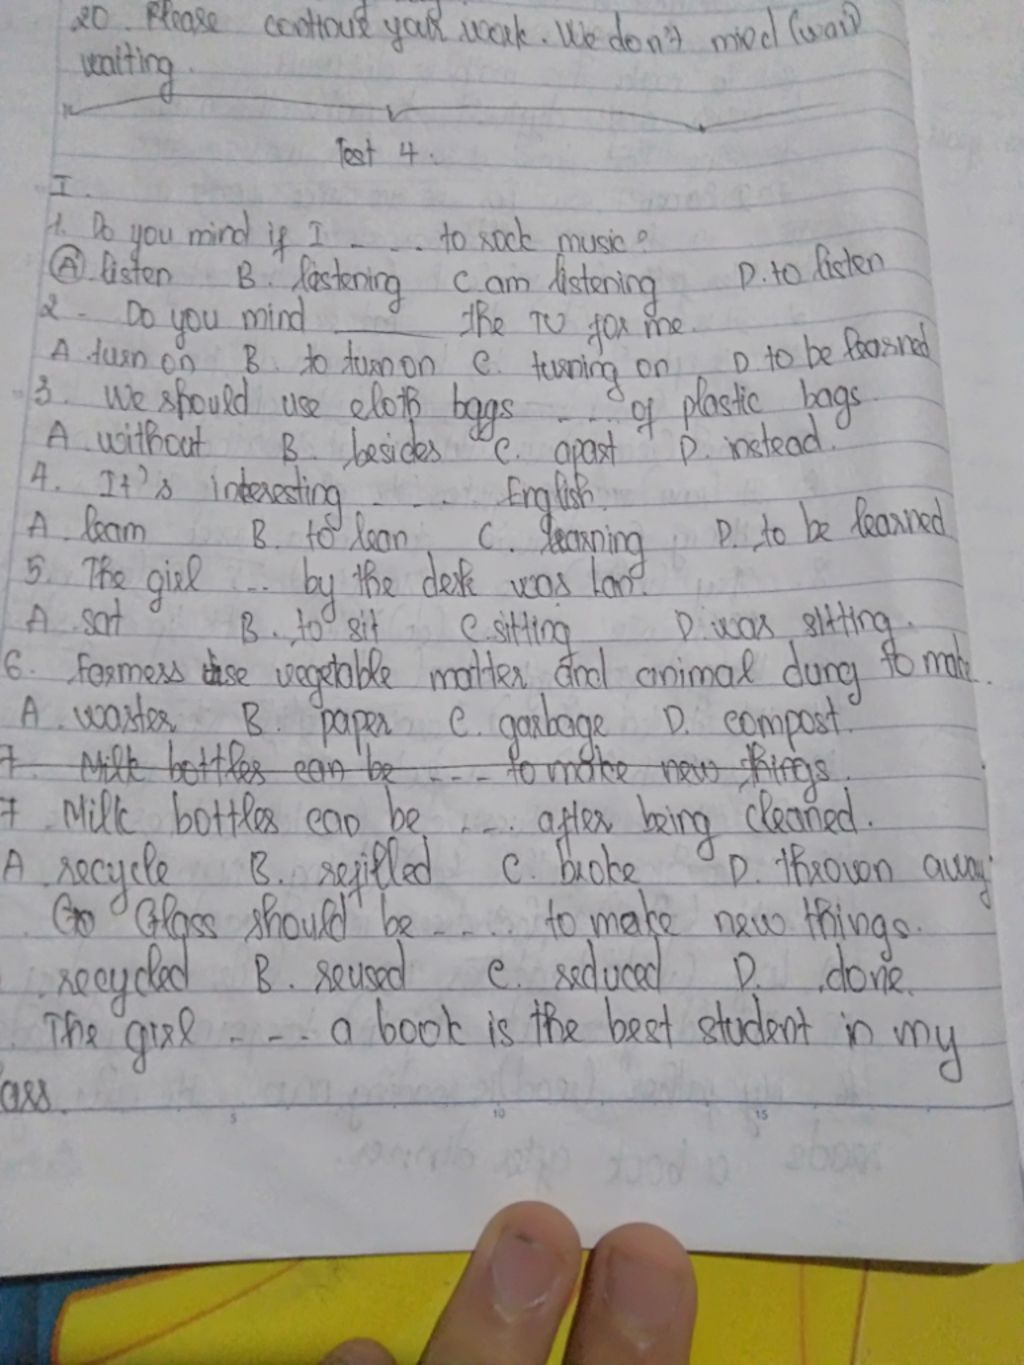 20. Please continue your work. We don't mind (wait)
waiting
Test 4.
I.
1. Do you mind if I .... to rock music?
A. listen B. listening C. am listening D. to listen
2. Do you mind ____ the TV for me.
A turn on B. to turn on C. turning on D to be learned
3. We should use cloth bags .... of plastic bags.
A. without B. besides C. apart D. instead.
4. It's interesting .... English.
A. learn B. to lean C. learning D. to be learned
5. The girl ... by the desk was Lan.
A. sat B. to sit C. sitting D. was sitting.
6. Farmers use vegetable matter and animal dung to make.
A. waster B. paper C. garbage D. compost.
7. Milk bottles can be .... to make new things.
7. Milk bottles can be .... after being cleaned.
A. recycle B. refilled C. broke D. thrown away
Glass should be .... to make new things.
recycled B. reused C. reduced D. done.
The girl .... a book is the best student in my
ass.
5 10 15